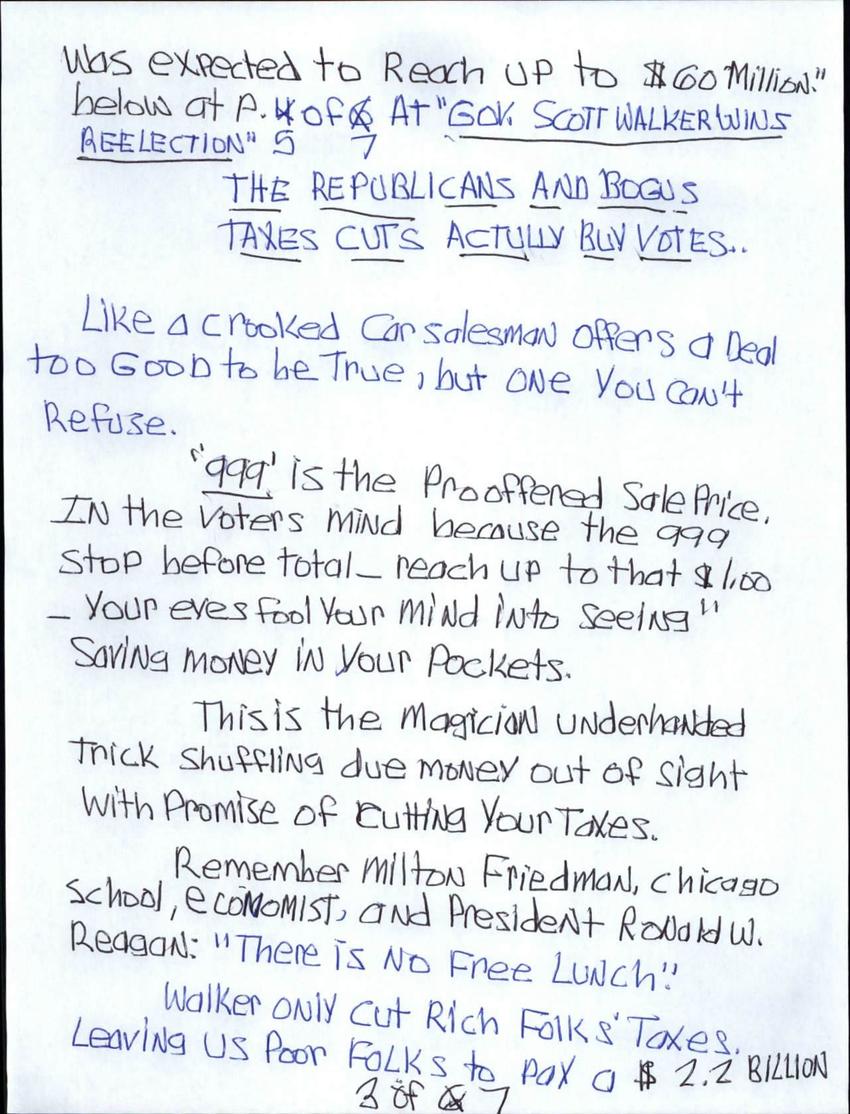 Was expected to Reach UP to $60 Million."
below at P. 4 of 6 At "GOV. SCOTT WALKER WINS
REELECTION" 5 7
THE REPUBLICANS AND BOGUS
TAXES CUTS ACTULLY BUY VOTES..
Like a crooked Car salesman offers a Deal
too GOOD to be True, but ONE YOU CAN't
Refuse.
"'999' is the Prooffered Sale Price.
IN the Voters mind because the 999
Stop before total_ reach up to that $1.00
_ Your eyes fool Your mind into seeing"
Saving money in Your Pockets.
This is the magician underhanded
trick shuffling due money out of sight
With Promise of cutting Your Taxes.
Remember Milton Friedman, Chicago
School, economist, and President Ronald W.
Reagan: "There is No Free Lunch."
Walker only cut Rich Folks' Taxes.
Leaving US Poor FOLKS to pay a $ 2.2 BILLION
3 of 6 7